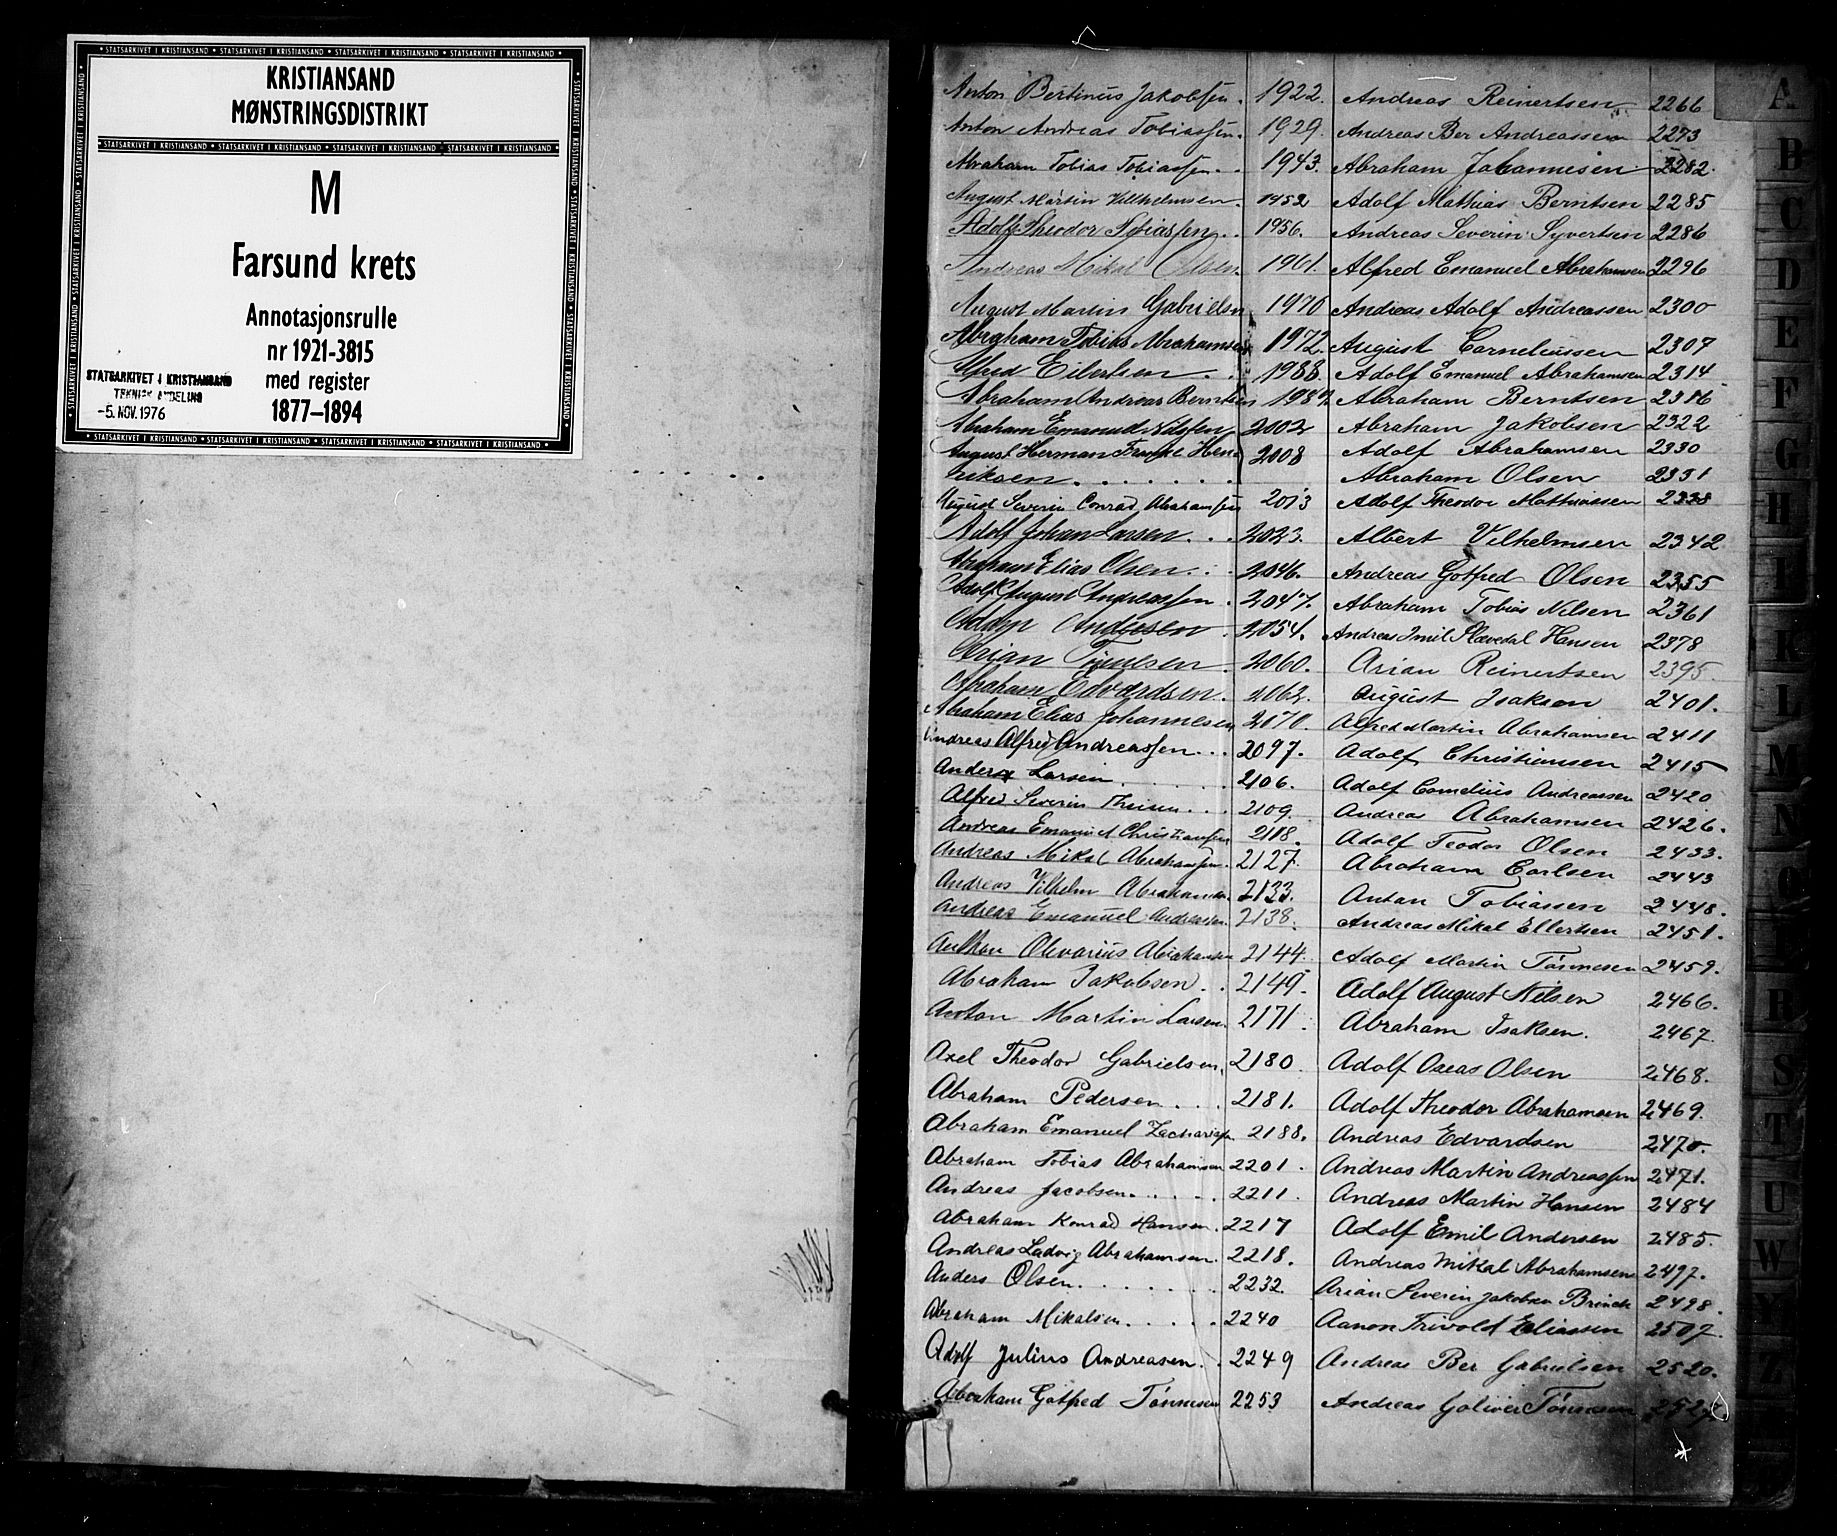 KRISTIANSAND
MØNSTRINGSDISTRIKT
M
Farsund krets
Annotasjonsrulle
nr 1921-3815
med register
1877–1894
STATSARKIVET I KRISTIANSAND
TEKNISK AVDELING
-5. NOV. 1976
Anton Bertinus Jakobsen. 1922.
Anton Andreas Tobiassen. 1929.
Abraham Tobias Tobiassen. 1943.
August Martin Vilhelmsen. 1952
Adolf Theodor Tobiassen. 1956.
Andreas Mikal Olsen. 1961.
August Martin Gabrielsen 1970
Abraham Tobias Abrahamsen 1972.
Alfred Eilertsen. 1988.
Abraham Andreas Berntsen 1989.
Abraham Emanuel Nilssen 2002
August Herman Hen- 2008
riksen
August Severin Conrad Abrahamsen 2013
Adolf Johan Larsen. 2023.
Abraham Elias Olsen. 2046.
Adolf August Andreassen. 2047.
2054.
Arian 2060.
Abraham Edvardsen. 2062.
Abraham Elias Johannesen 2070.
Andreas Alfred Andreassen. 2097.
Anders Larsen 2106.
Alfred Severin 2109.
Andreas Emanuel Christianssen 2118.
Andreas Mikal Abrahamsen. 2127.
Andreas Vilhelm Abrahamsen 2133.
Andreas Emanuel Andreassen. 2138.
Olivarius Abrahamsen 2144.
Abraham Jakobsen. 2149.
Anton Martin Larsen. 2171.
Axel Theodor Gabrielsen. 2180.
Abraham Pedersen. 2181.
Abraham Emanuel Zachariasen 2188.
Abraham Tobias Abrahamsen 2201.
Andreas Jacobsen. 2211.
Abraham Konrad Hansen. 2217
Andreas Ludvig Abrahamsen. 2218.
Anders Olsen. 2232.
Abraham Mikalsen. 2240
Adolf Julius Andreasen. 2249
Abraham Gotfred Tönnesen 2253
Andreas Reinertsen 2266
Andreas Ber Andreassen 2273
Abraham Johannesen 2282.
Adolf Mathias Berntsen 2285
Andreas Severin Syvertsen 2286
Alfred Emanuel Abrahamsen 2296
Andreas Adolf Andreassen 2300
August Corneliussen 2307
Adolf Emanuel Abrahamsen 2314
Abraham Berntsen 2316
Abraham Jakobsen 2322
Adolf Abrahamsen 2330
Abraham Olsen 2331
Adolf Theodor Mathiassen 2338
Albert Vilhelmsen 2342
Andreas Gotfred Olsen 2355
Abraham Tobias Nilsen 2361
Andreas Emil Hansen 2378
Arian Reinertsen 2395.
August Isaksen 2401.
Alfred Martin Abrahamsen 2411
Adolf Christiansen 2415
Adolf Cornelius Andreassen 2420
Andreas Abrahamsen 2426.
Adolf Teodor Olsen 2433.
Abraham Carlsen 2443
Anton Tobiassen 2448.
Andreas Mikal Ellertsen 2451.
Adolf Martin Tönnesen 2459.
Adolf August Nilsen 2466.
Abraham Isaksen. 2467.
Adolf Oseas Olsen 2468.
Adolf Theodor Abrahamsen 2469.
Andreas Edvardsen 2470.
Andreas Martin Andreassen 2471.
Andreas Martin Hansen 2484
Adolf Emil Andersen 2485.
Andreas Mikal Abrahamsen 2497.
Arian Severin Jakobsen Brinch 2498.
Aanon Trivold Eliassen 2507.
Andreas Ber Gabrielsen 2520.
Andreas Tönnesen
A
B
C
D
E
F
G
H
I
K
L
M
N
O
P
R
S
T
U
W
Z